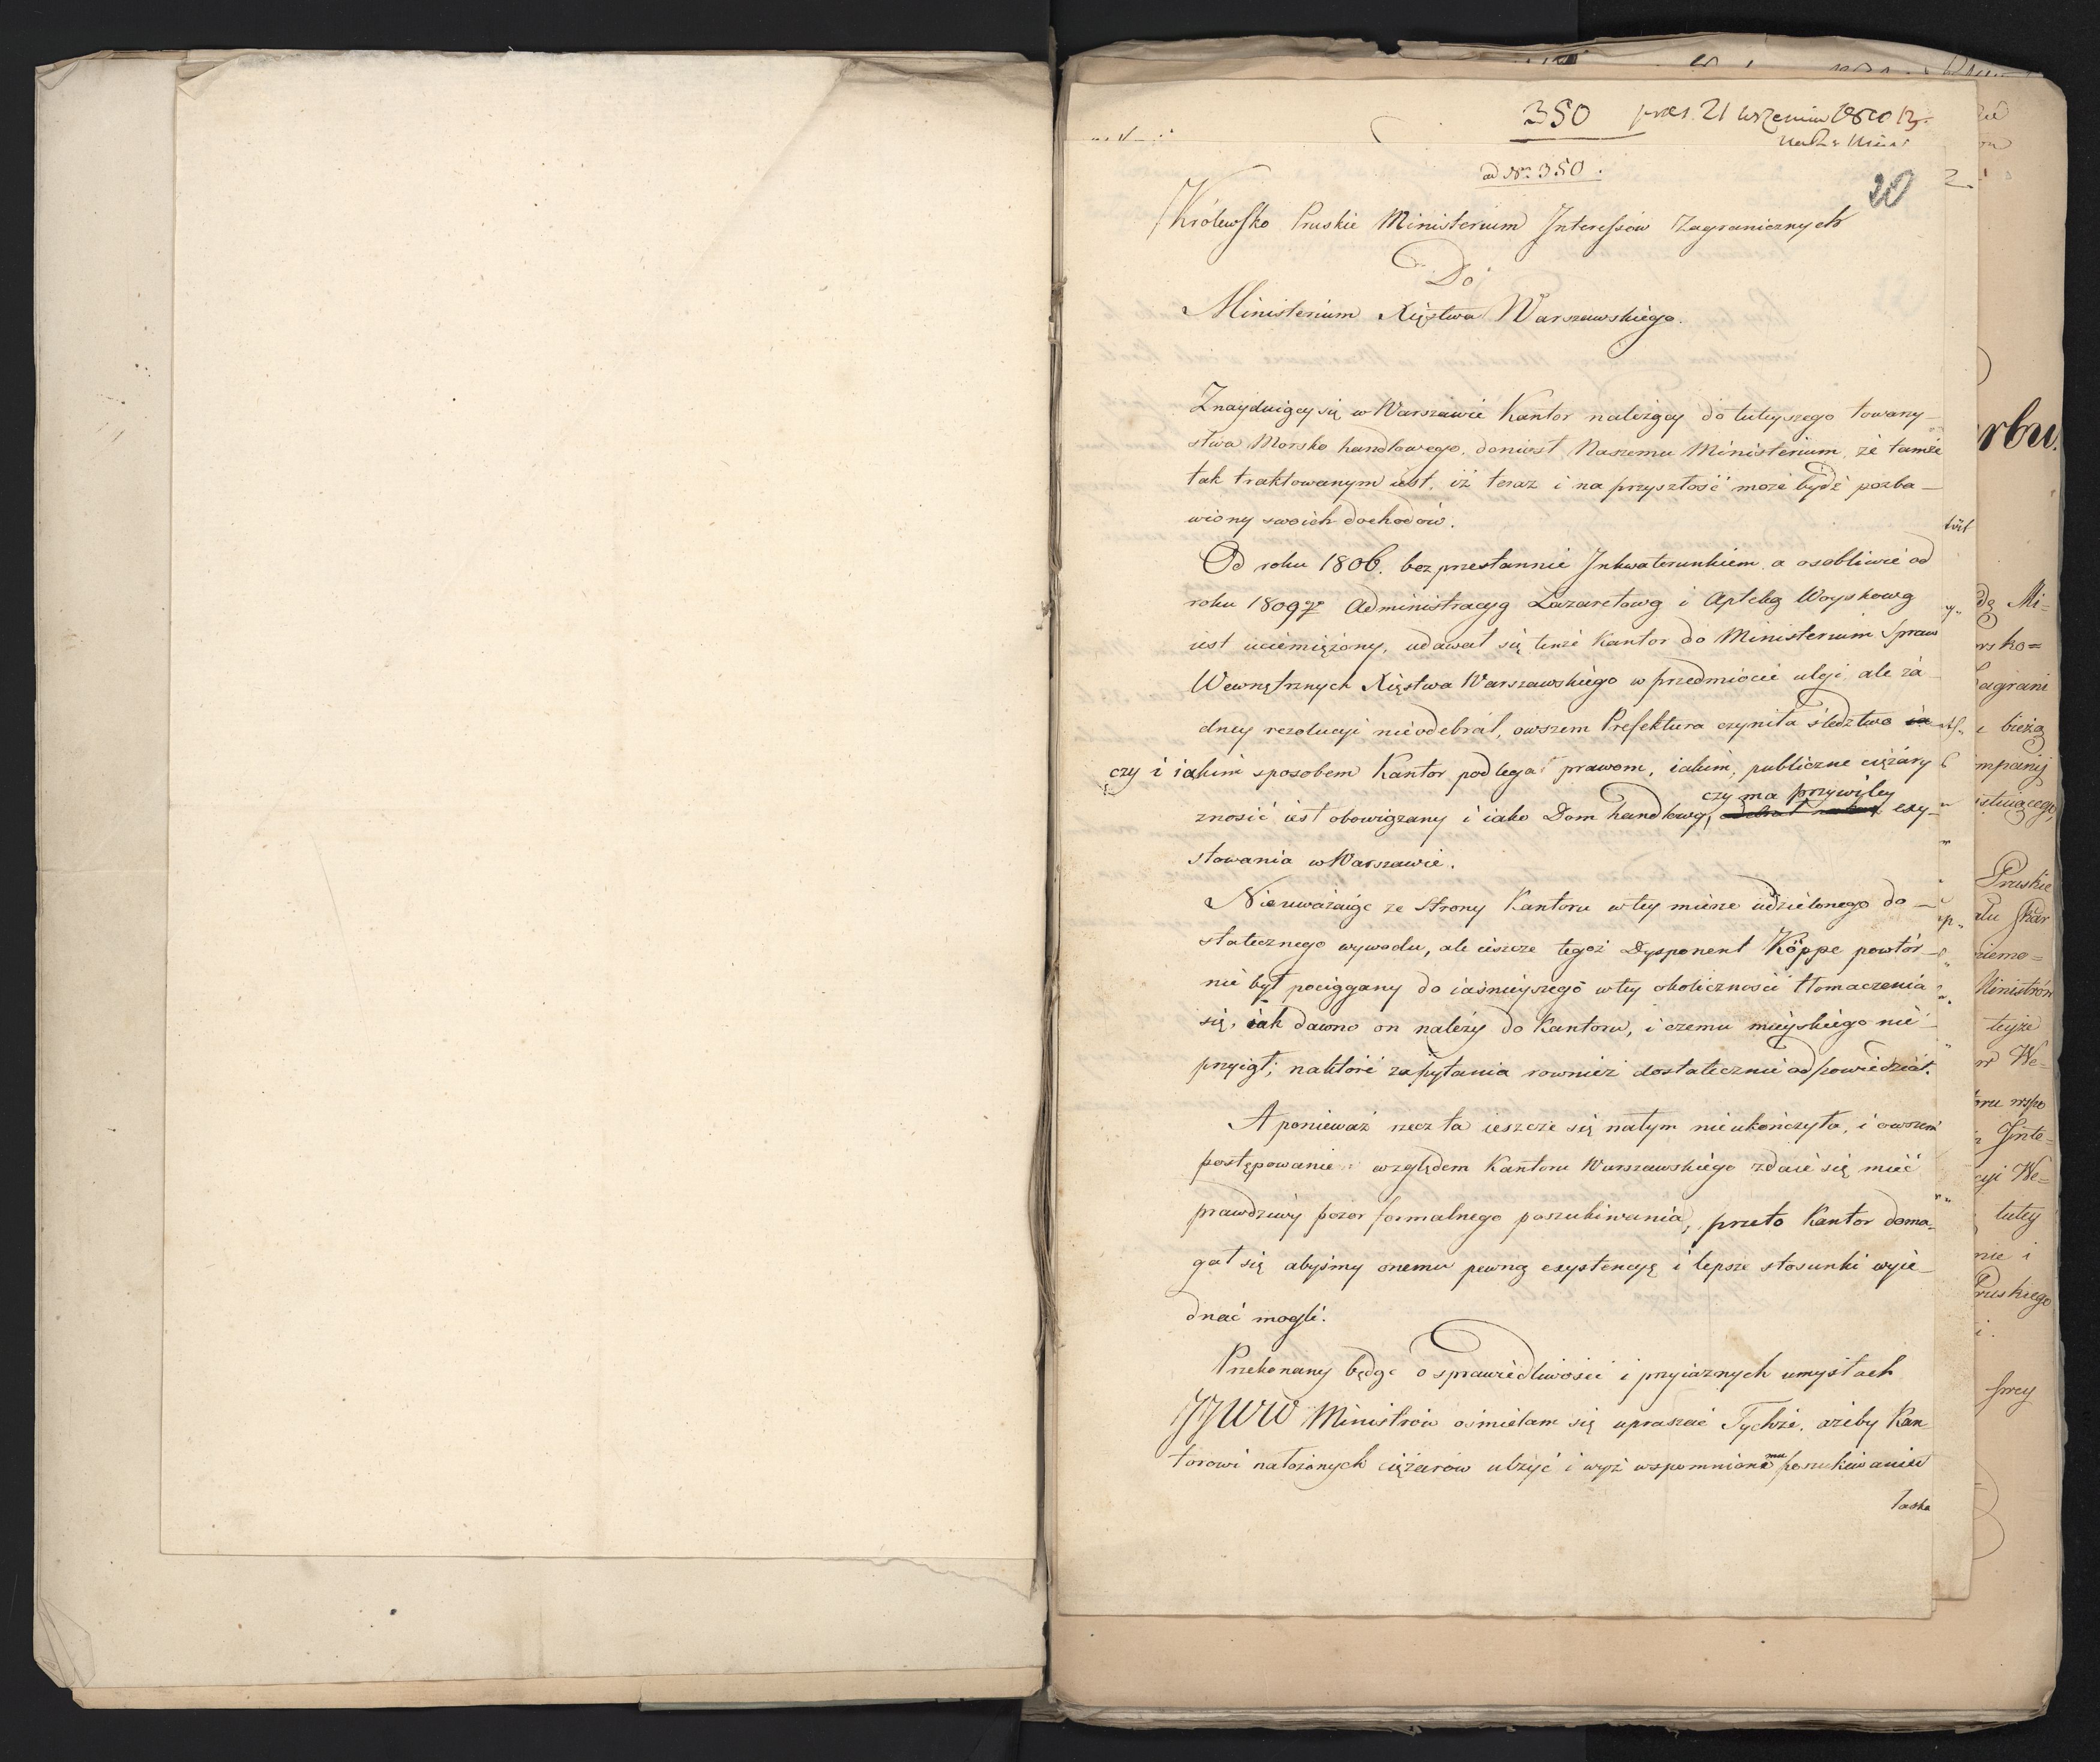 350 21 września 1810
ad Nr. 350.
20
Królewsko Pruskie Ministerium Interessów Zagranicznych
Do
Ministerium Xięstwa Warszawskiego.
Znayduiący się w Warszawie Kantor należący do tuteyszego towarzy-
stwa Morsko handlowego, doniosł Naszemu Ministerium, że tamże
tak traktowanym iest, iż teraz i na przyszłość może bydź pozba-
wiony swoich dochodów.
Od roku 1806. bezprzestannie Inkwaterunkiem, a osobliwie od
roku 1809go Administracyą Lazaretową i Apteką Woyskową
iest uciemiężony, udawał się tenże Kantor do Ministerium Spraw
Wewnętrznych Xięstwa Warszawskiego w przedmiocie ulgi, ale ża-
dney rezolucyi nieodebrał, owszem Prefektura czyniła śledztwo
czy i iakim sposobem Kantor podlega prawom, iakim, publiczne ciężary
znosić iest obowiązany i iako Dom handlowy, czy ma przywiley exy-
stowania w Warszawie.
Nieuważaiąc ze strony Kantoru w tey mierze udzielonego do-
statecznego wywodu, ale ieszcze tegoż Dysponent Köppe powtór-
nie był pociągany do iaśnieyszego w tey okoliczności tłomaczenia
się, iak dawno on należy do Kantoru, i czemu mieyskiego nie
przyiął; naktóre zapytania rownież dostatecznie odpowiedział.
A ponieważ rzecz ta ieszcze się natym nieukończyła, i owszem
postępowanie względem Kantoru Warszawskiego zdaie się mieć
prawdziwy pozor formalnego poszukiwania, przeto Kantor doma-
gał się abyśmy onemu pewną exystencyę i lepsze stosunki wyie-
dnać mogli.
Przekonany będąc o sprawiedliwości i przyiaznych umysłach
JJWW Ministrów ośmielam się upraszać Tychże, ażeby Kan-
torowi nałożonych ciężarów ulżyć i wyż wspomnionemu poszukiwaniu
łaska